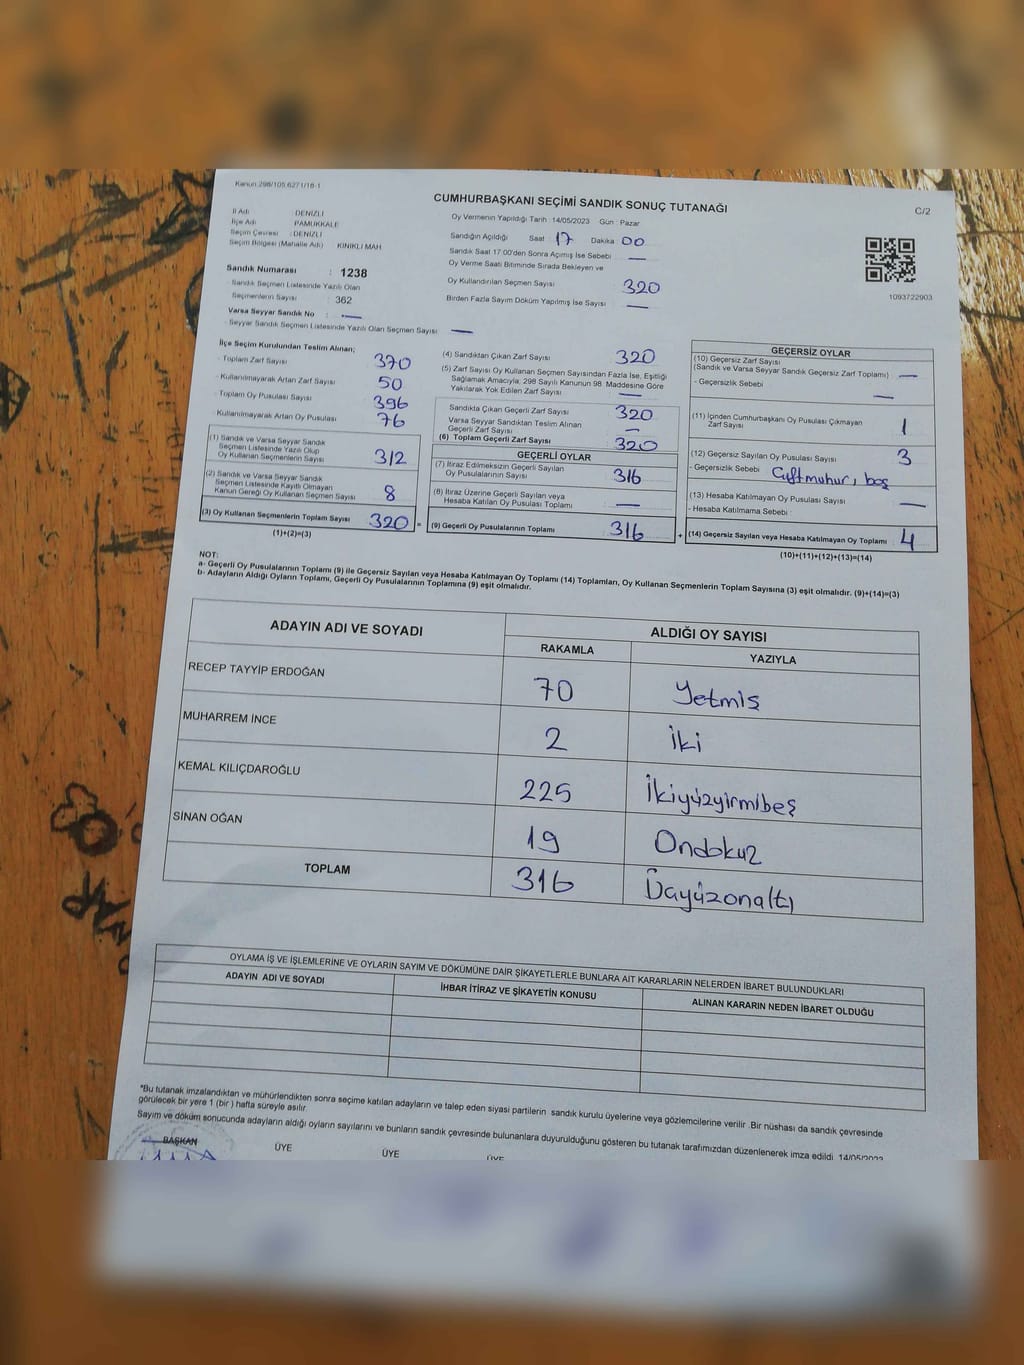 Kanun.298/105,6271/16-1
CUMHURBAŞKANI SEÇİMİ SANDIK SONUÇ TUTANAĞI
C/2
İl Adı : DENİZLİ
İlçe Adı : PAMUKKALE
Seçim Çevresi : DENİZLİ
Seçim Bölgesi (Mahalle Adı) KINIKLI MAH
Sandık Numarası : 1238
Sandık Seçmen Listesinde Yazılı Olan
Seçmenlerin Sayısı : 362
Varsa Seyyar Sandık No : —
- Seyyar Sandık Seçmen Listesinde Yazılı Olan Seçmen Sayısı —
Oy Vermenin Yapıldığı Tarih :14/05/2023 Gün : Pazar
Sandığın Açıldığı Saat : 17 Dakika 00
Sandık Saat 17:00'den Sonra Açımış İse Sebebi —
Oy Verme Saati Bitiminde Sırada Bekleyen ve
Oy Kullandırılan Seçmen Sayısı 320
Birden Fazla Sayım Döküm Yapılmış İse Sayısı —
1093722903
İlçe Seçim Kurulundan Teslim Alınan;
- Toplam Zarf Sayısı 370
- Kullanılmayarak Artan Zarf Sayısı 50
- Toplam Oy Pusulası Sayısı 396
- Kullanılmayarak Artan Oy Pusulası 76
(1) Sandık ve Varsa Seyyar Sandık
Seçmen Listesinde Yazılı Olup
Oy Kullanan Seçmenlerin Sayısı 312
(2) Sandık ve Varsa Seyyar Sandık
Seçmen Listesinde Kayıtlı Olmayan
Kanun Gereği Oy Kullanan Seçmen Sayısı 8
(3) Oy Kullanan Seçmenlerin Toplam Sayısı 320 =
(1)+(2)=(3)
(4) Sandıktan Çıkan Zarf Sayısı 320
(5) Zarf Sayısı Oy Kullanan Seçmen Sayısından Fazla İse, Eşitliği
Sağlamak Amacıyla; 298 Sayılı Kanunun 98. Maddesine Göre
Yakılarak Yok Edilen Zarf Sayısı —
Sandıkta Çıkan Geçerli Zarf Sayısı 320
Varsa Seyyar Sandıktan Teslim Alınan
Geçerli Zarf Sayısı —
(6) Toplam Geçerli Zarf Sayısı 320
GEÇERLİ OYLAR
(7) İtiraz Edilmeksizin Geçerli Sayılan
Oy Pusulalarının Sayısı 316
(8) İtiraz Üzerine Geçerli Sayılan veya
Hesaba Katılan Oy Pusulası Toplamı —
(9) Geçerli Oy Pusulalarının Toplamı 316 +
GEÇERSİZ OYLAR
(10) Geçersiz Zarf Sayısı
(Sandık ve Varsa Seyyar Sandık Geçersiz Zarf Toplamı) —
- Geçersizlik Sebebi —
(11) İçinden Cumhurbaşkanı Oy Pusulası Çıkmayan
Zarf Sayısı 1
(12) Geçersiz Sayılan Oy Pusulası Sayısı 3
- Geçersizlik Sebebi Çiftmühür, boş
(13) Hesaba Katılmayan Oy Pusulası Sayısı —
- Hesaba Katılmama Sebebi :
(14) Geçersiz Sayılan veya Hesaba Katılmayan Oy Toplamı 4
(10)+(11)+(12)+(13)=(14)
NOT:
a- Geçerli Oy Pusulalarının Toplamı (9) ile Geçersiz Sayılan veya Hesaba Katılmayan Oy Toplamı (14) Toplamları, Oy Kullanan Seçmenlerin Toplam Sayısına (3) eşit olmalıdır. (9)+(14)=(3)
b- Adayların Aldığı Oyların Toplamı, Geçerli Oy Pusulalarının Toplamına (9) eşit olmalıdır.
ADAYIN ADI VE SOYADI
ALDIĞI OY SAYISI
RAKAMLA YAZIYLA
RECEP TAYYİP ERDOĞAN 70 Yetmiş
MUHARREM İNCE 2 İki
KEMAL KILIÇDAROĞLU 225 İkiyüzyirmibeş
SİNAN OĞAN 19 Ondokuz
TOPLAM 316 Üçyüzonaltı
OYLAMA İŞ VE İŞLEMLERİNE VE OYLARIN SAYIM VE DÖKÜMÜNE DAİR ŞİKAYETLERLE BUNLARA AİT KARARLARIN NELERDEN İBARET BULUNDUKLARI
ADAYIN ADI VE SOYADI İHBAR İTİRAZ VE ŞİKAYETİN KONUSU ALINAN KARARIN NEDEN İBARET OLDUĞU
*Bu tutanak imzalandıktan ve mühürlendikten sonra seçime katılan adayların ve talep eden siyasi partilerin sandık kurulu üyelerine veya gözlemcilerine verilir .Bir nüshası da sandık çevresinde
görülecek bir yere 1 (bir ) hafta süreyle asılır.
Sayım ve döküm sonucunda adayların aldığı oyların sayılarını ve bunların sandık çevresinde bulunanlara duyurulduğunu gösteren bu tutanak tarafımızdan düzenlenerek imza edildi. 14/05/2023
BAŞKAN ÜYE ÜYE ÜYE